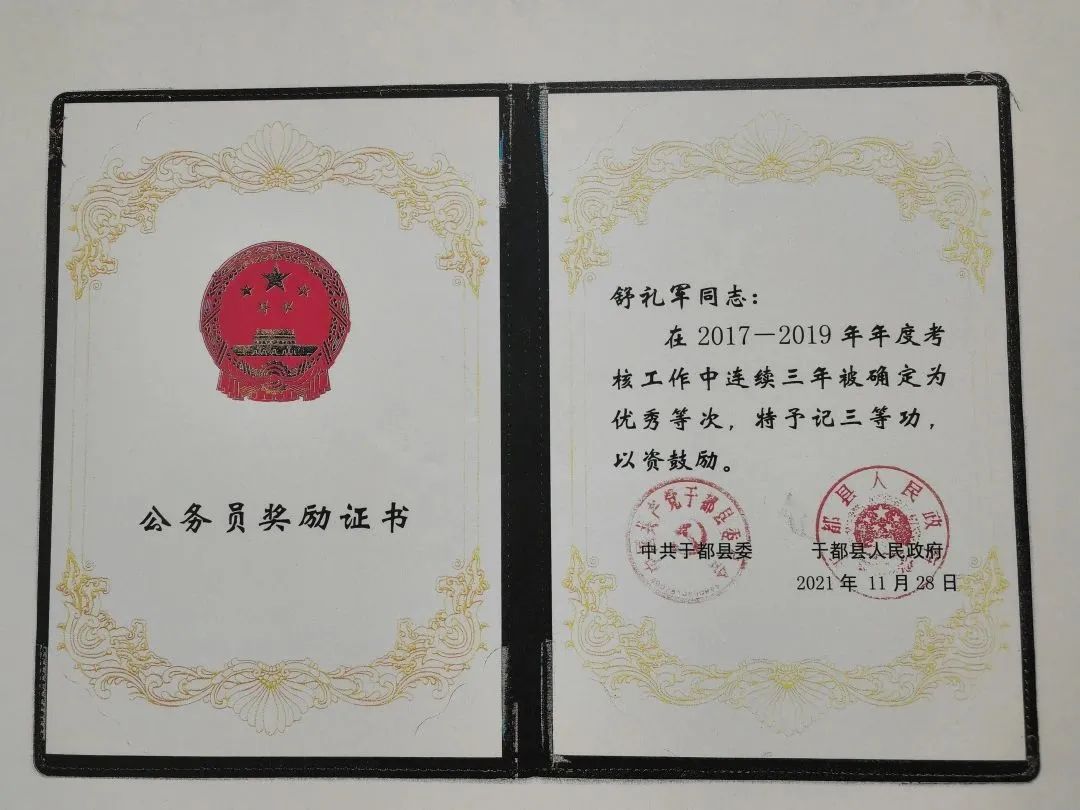 公务员奖励证书
舒礼军同志：
在2017－2019年年度考
核工作中连续三年被确定为
优秀等次，特予记三等功，
以资鼓励。
中共于都县委
于都县人民政府
2021年11月28日